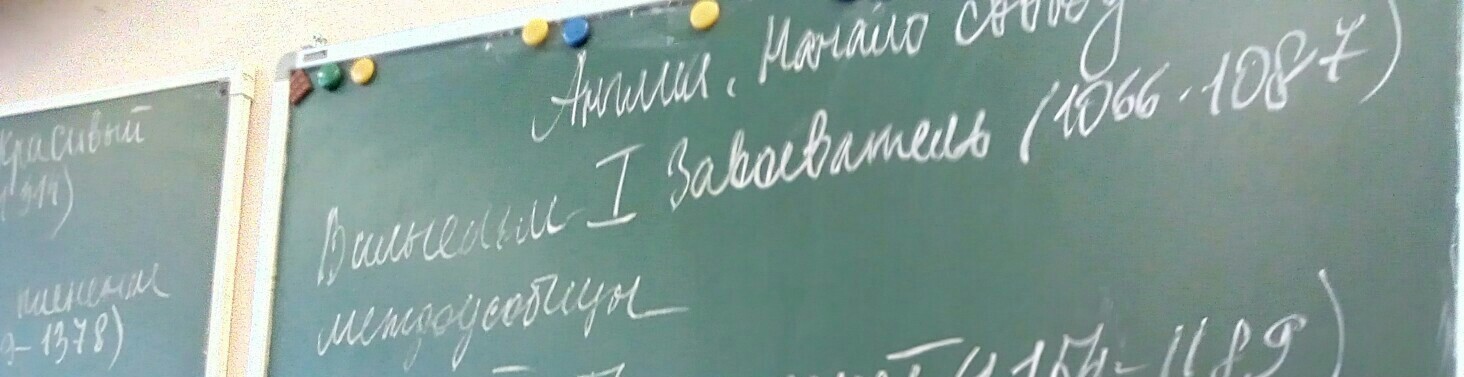 Красивый
1314)
пленение
9-1378)
Англия. Начало свобод
Вильгельм I Завоеватель (1066-1087)
междоусобицы
(1154-1189)